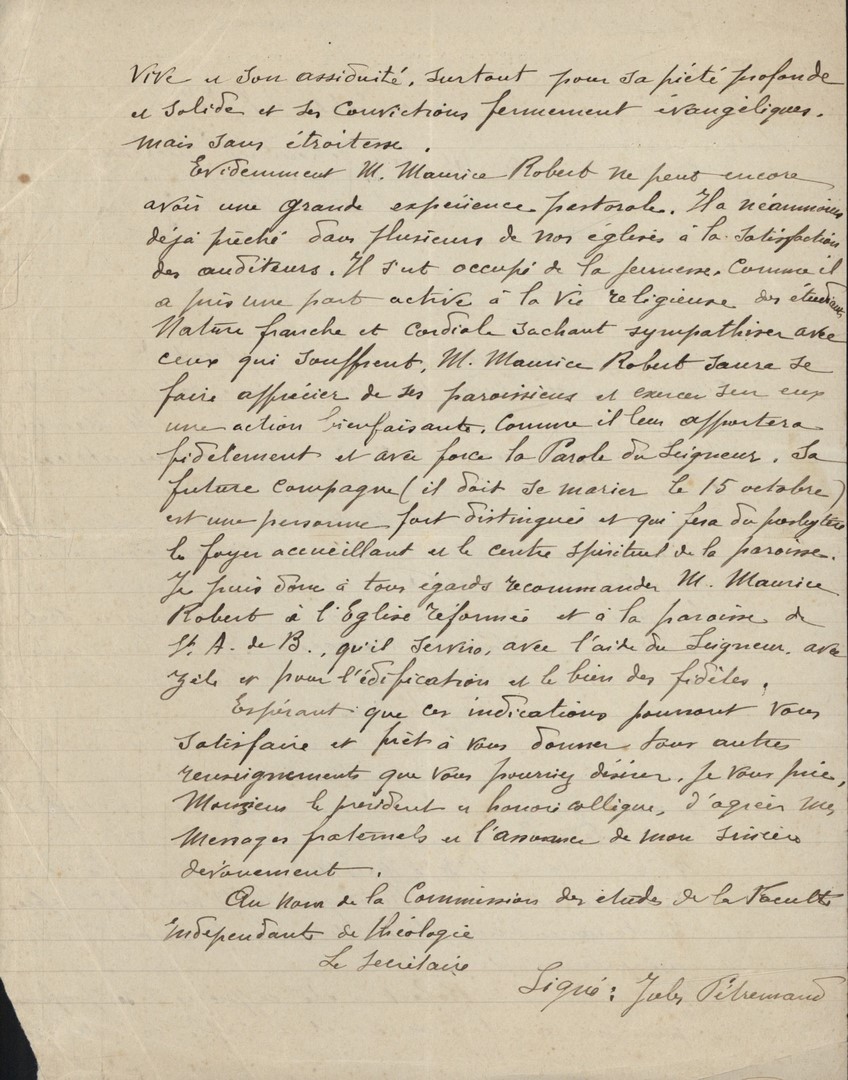 vive et son assiduité, surtout pour sa piété profonde
et solide et ses convictions fermement évangéliques,
mais sans étroitesse.
Evidemment M. Maurice Robert ne peut encore
avoir une grande expérience pastorale. Il a néanmoins
déjà prêché dans plusieurs de nos églises à la satisfaction
des auditeurs. Il s'est occupé de la jeunesse, comme il
a pris une part active à la vie religieuse des étudiants
Nature franche et cordiale sachant sympathiser avec
ceux qui souffrent, M. Maurice Robert saura se
faire apprécier de ses paroissiens et exercer sur eux
une action bienfaisante, comme il leur apportera
fidèlement et avec force la Parole du Seigneur. Sa
future compagne (il doit se marier le 15 octobre)
est une personne fort distinguée et qui fera du presbytère
le foyer accueillant et le centre spirituel de la paroisse.
Je puis donc à tous égards recommander M. Maurice
Robert à l'Eglise réformée et à la paroisse de
St. A. de B., qu'il servira, avec l'aide du Seigneur, avec
zèle et pour l'édification et le bien des fidèles.
Espérant que ces indications pourront vous
satisfaire et prêt à vous donner tous autres
renseignements que vous pourriez désirer, je vous prie,
Monsieur le président et honoré collègue, d'agréer mes
messages fraternels et l'assurance de mon sincère
dévouement.
Au nom de la Commission des études de la Faculté
Indépendante de théologie
Le secrétaire
Signé: Jules Pétremand